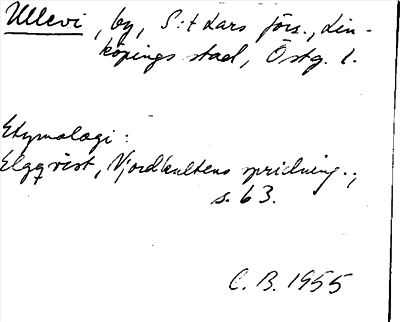 Ullevi, by, S:t Lars förs., Lin-
köpings stad, Östg. l.
Etymologi:
Elgqvist, Njordkultens spridning.,
s. 63.
C. B. 1955